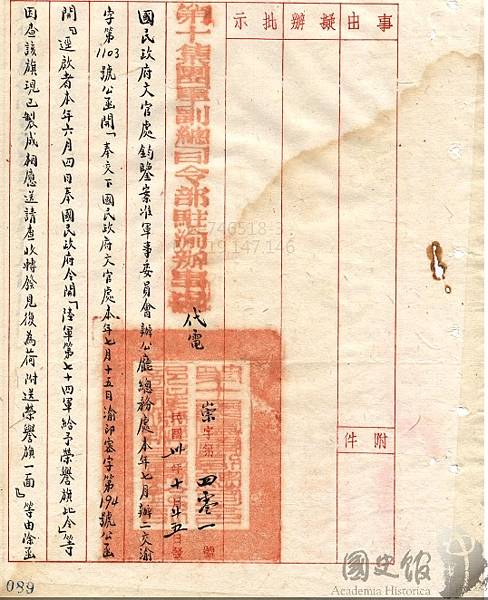 事由擬辦批示
附件
第十集團軍副總司令部駐渝辦事處
代電
崇字第四零一號
民國卅年十月廿五日發
國民政府文官處鈞鑒案准軍事委員會辦公廳總務處本年七月辦二文渝
字第1103號公函開「奉交下國民政府文官處本年七月十五日渝印塞字第194號公函
開「逕啟者本年六月四日奉國民政府令開「陸軍第七十四軍給予榮譽旗此令」等
因查該旗現已製成相應送請查收轉發見復為荷附送榮譽旗一面」等由除函
089
國史館
Academia Historica